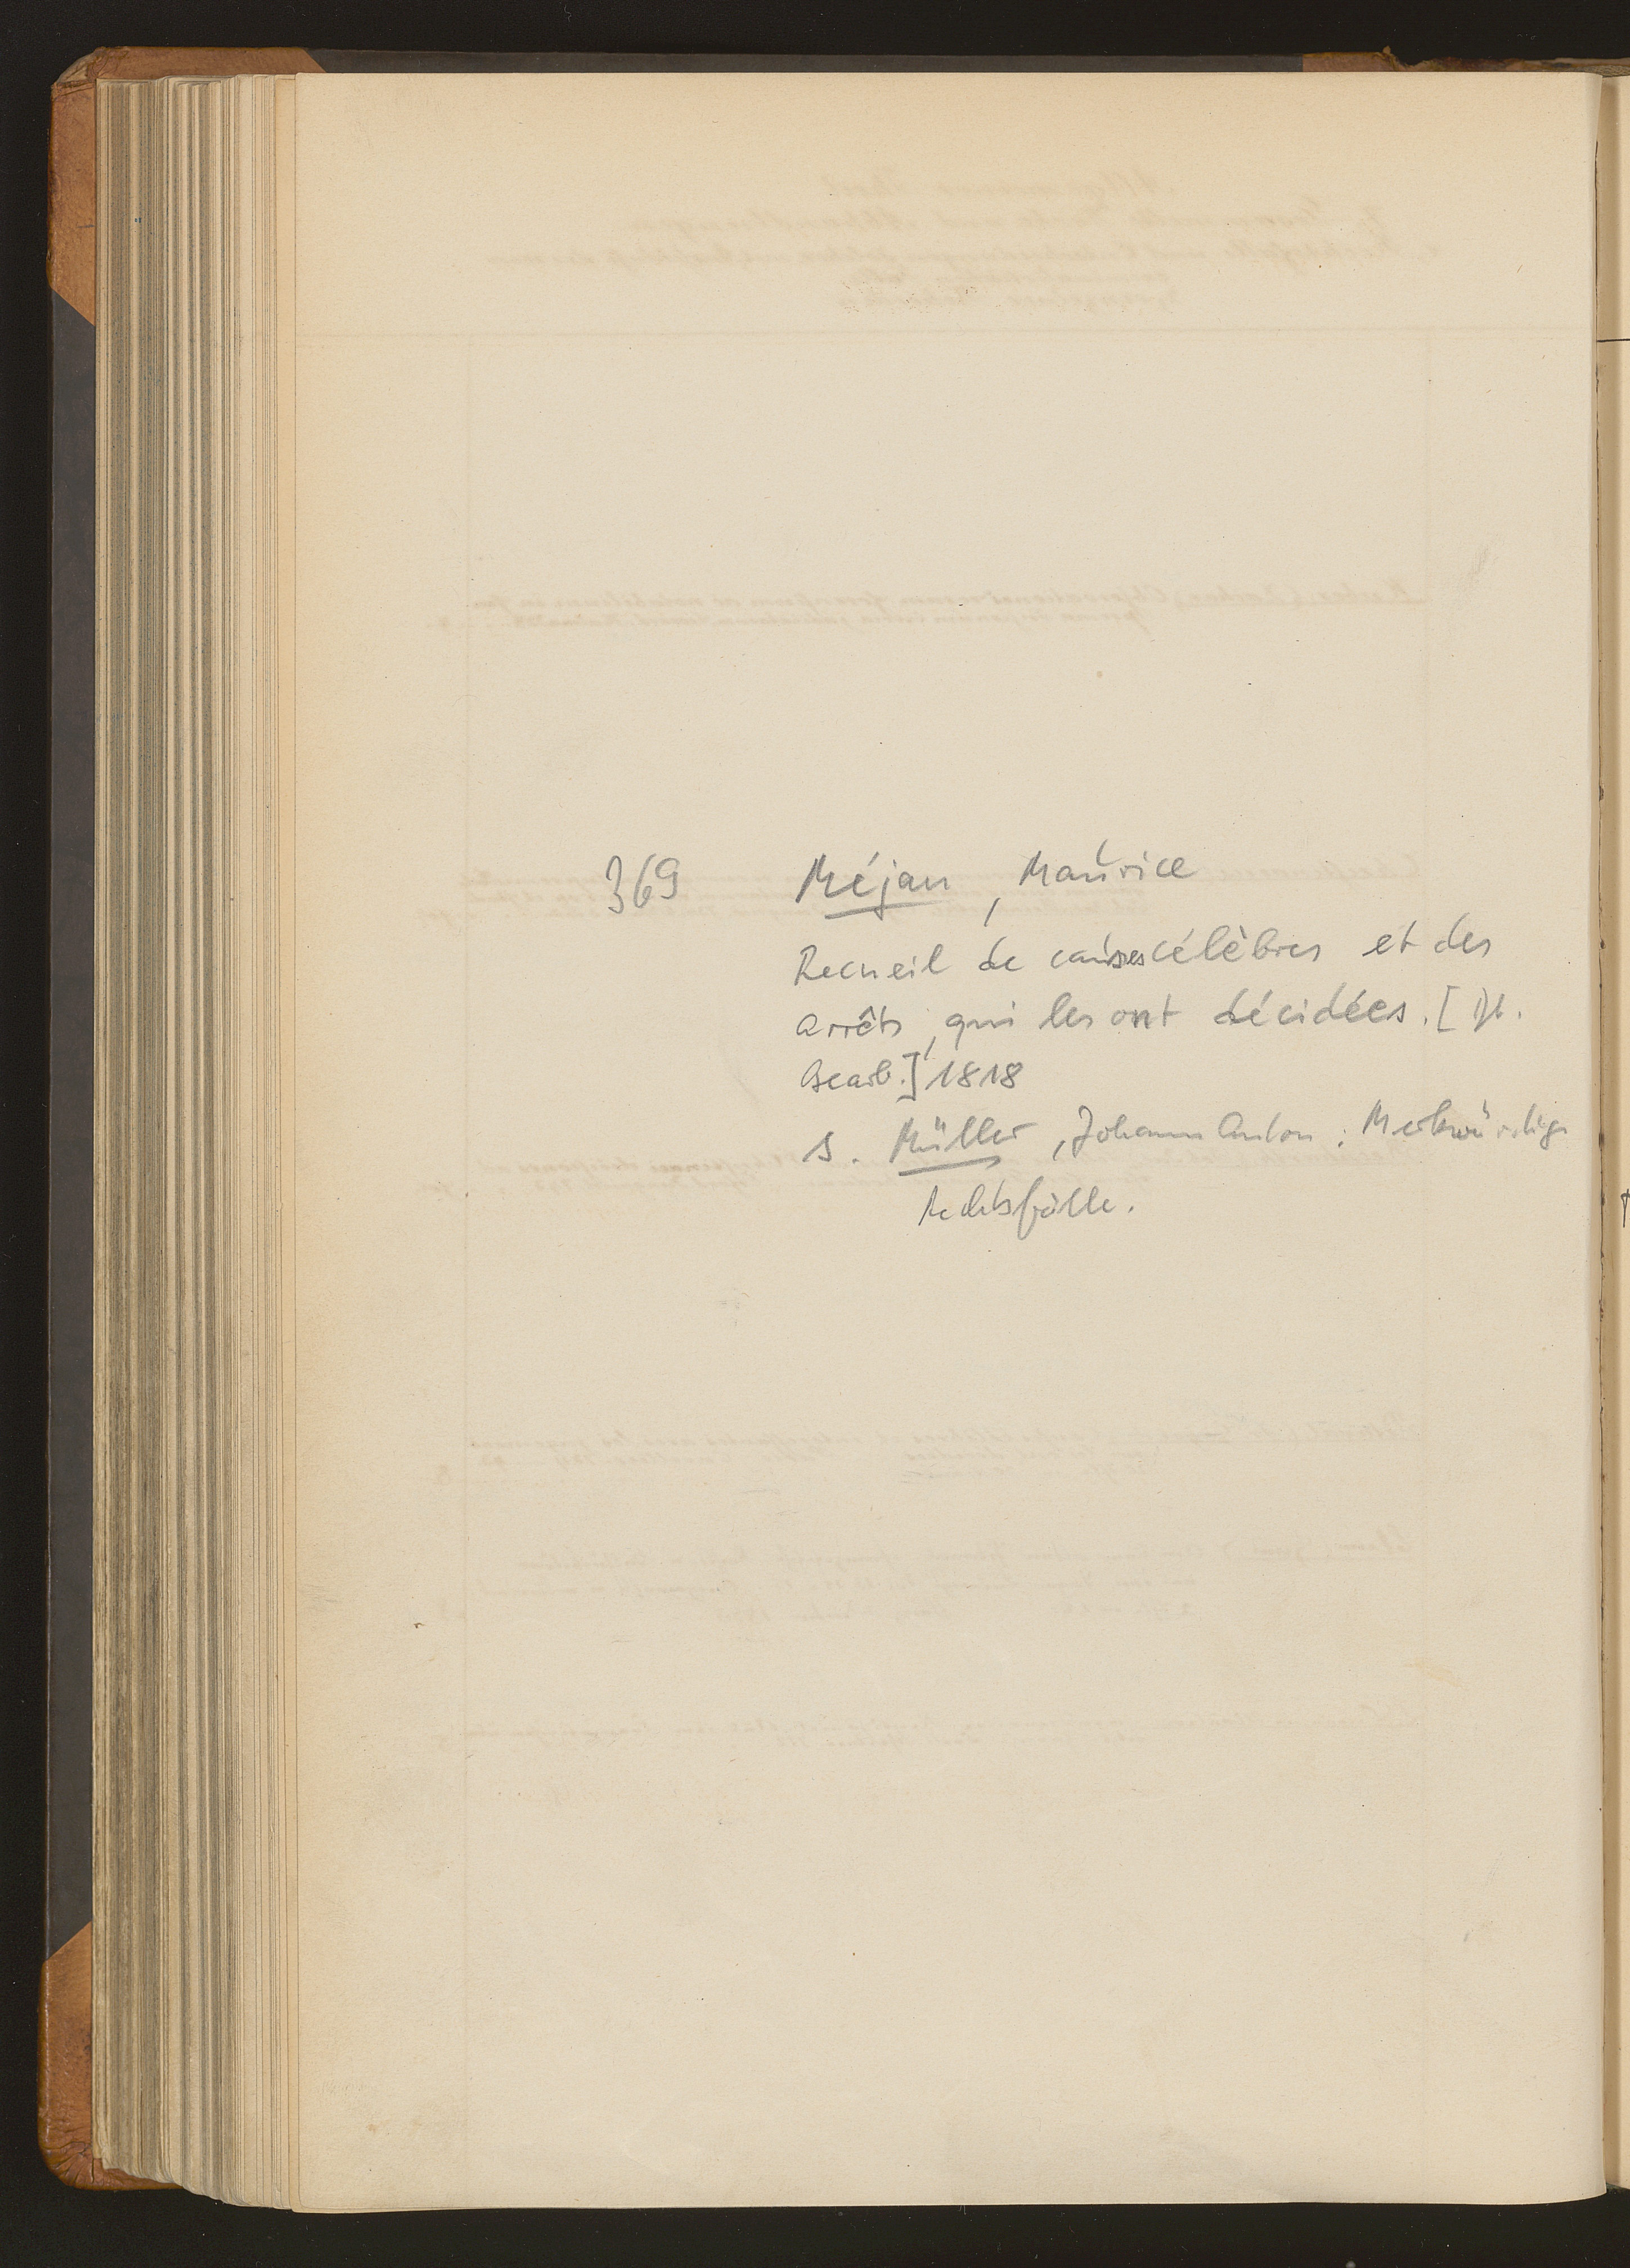 369 Méjan, Maurice
Recueil de causes célèbres et des
arrêts, qui les ont décidées. [Dt.
Bearb.] 1818
s. Müller, Johann Anton: Merkwürdige
Rechtsfälle.